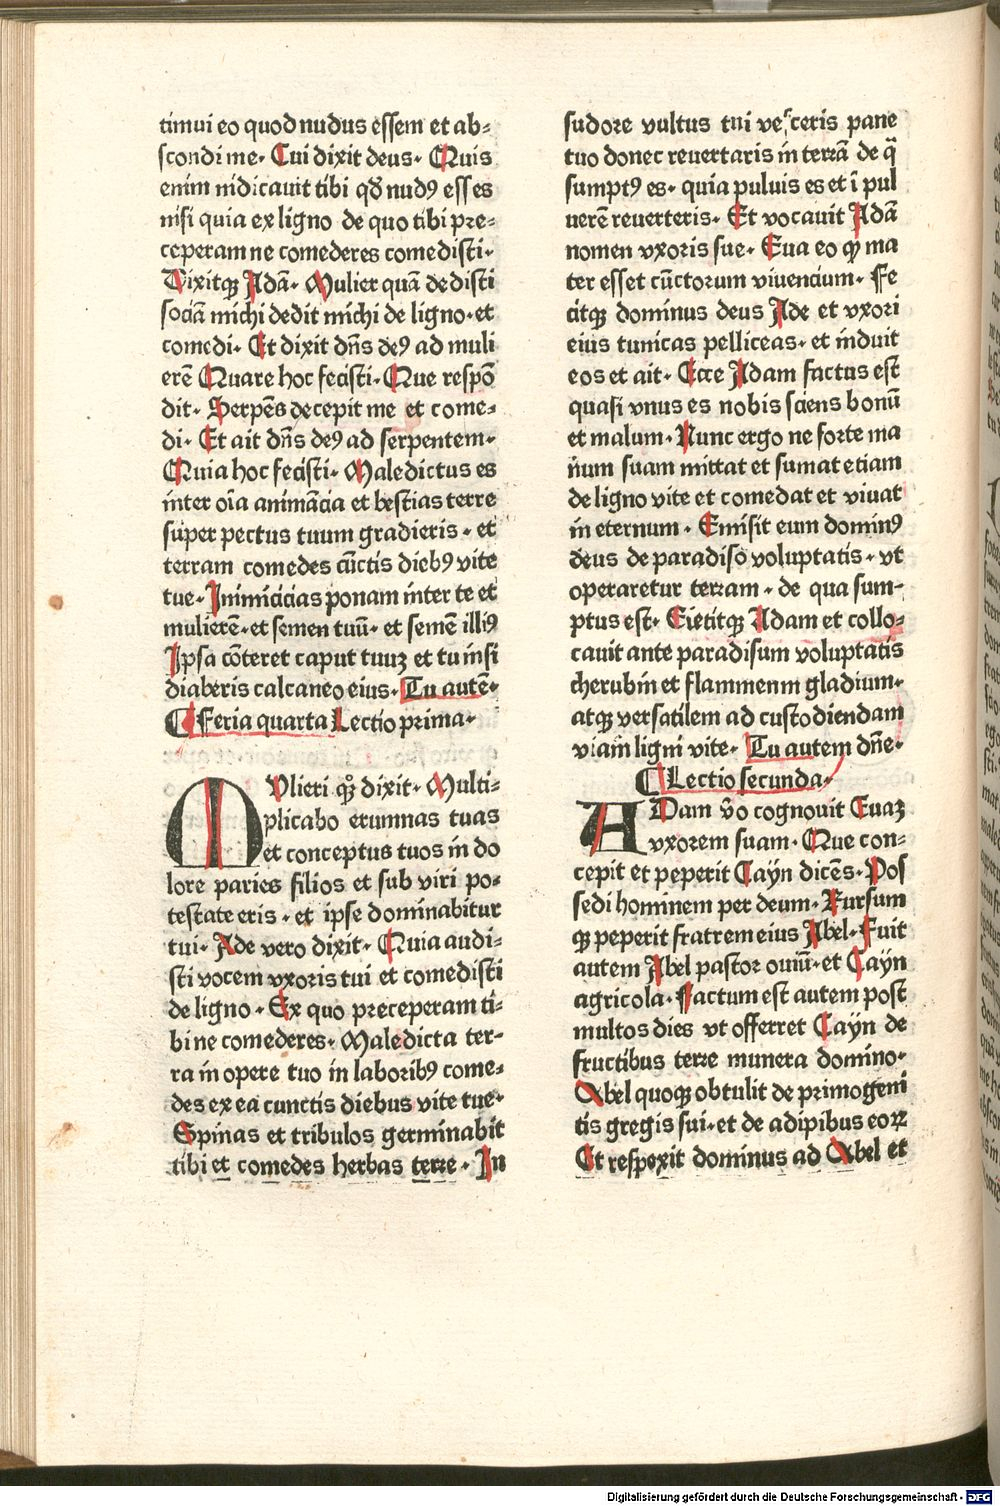 timui eo quod nudus essem et ab⸗
scondi me. Cui dixit deus. Quis
enim nidicauit tibi qđ nudꝰ esses
nisi quia ex ligno de quo tibi pre⸗
ceperam ne comederes comedisti.
Dixitqꝫ Adā. Mulier quā dedisti
sociā michi dedit michi de ligno. et
comedi. Et dixit dn̄s deꝰ ad muli
erē Quare hoc fecisti. Que respō
dit. Serpēs decepit me et come⸗
di. Et ait dn̄s deꝰ ad serpentem.
Quia hoc fecisti. Maledictus es
inter oīa animācia et bestias terre
super pectus tuum gradieris. et
terram comedes cūctis diebꝰ vite
tue. Inimicicias ponam inter te et
mulierē. et semen tuū. et semē illiꝰ
Ipsa cōteret caput tuuꝫ et tu insi
diaberis calcaneo eius. Tu autē.
¶ Feria quarta Lectio prima.
MVlieri qꝫ dixit. Multi⸗
plicabo erumnas tuas
et conceptus tuos in do
lore paries filios et sub viri po⸗
testate eris. et ipse dominabitur
tui. Ade vero dixit. Quia audi⸗
sti vocem vxoris tui et comedisti
de ligno. Ex quo preceperam ti⸗
bi ne comederes. Maledicta ter⸗
ra in opere tuo in laboribꝰ come⸗
des ex ea cunctis diebus vite tue.
Spinas et tribulos germinabit
tibi et comedes herbas terre. In
sudore vultus tui vesceris pane
tuo donec reuertaris in terrā de q̄
sumptꝰ es. quia puluis es et ī pul
uerē reuerteris. Et vocauit Adā
nomen vxoris sue. Eua eo qꝙ ma
ter esset cūctorum viuencium. Fe
citqꝫ dominus deus Ade et vxori
eius tunicas pelliceas. et induit
eos et ait. Ecce Adam factus est
quasi vnus es nobis sciens bonū
et malum. Nunc ergo ne forte ma
num suam mittat et sumat etiam
de ligno vite et comedat et viuat
in eternum. Emisit eum dominꝰ
deus de paradiso voluptatis. vt
operaretur terram. de qua sum⸗
ptus est. Eiecitqꝫ Adam et collo⸗
cauit ante paradisum voluptatis
cherubin et flammenm gladium.
atqꝫ versatilem ad custodiendam
viam ligni vite. Tu autem dn̄e.
¶ Lectio secunda.
ADam v̄o cognouit Euaꝫ
vxorem suam. Que con⸗
cepit et peperit Cayn dicēs. Pos
sedi hominem per deum. Rursum
qꝫ peperit fratrem eius Abel. Fuit
autem Abel pastor ouiū. et Cayn
agricola. Factum est autem post
multos dies vt offerret Cayn de
fructibus terre munera domino.
Abel quoqꝫ obtulit de primogeni
tis gregis sui. et de adipibus eoꝝ
Et respexit dominus ad Abel et
Digitalisierung gefördert durch die Deutsche Forschungsgemeinschaft - DFG